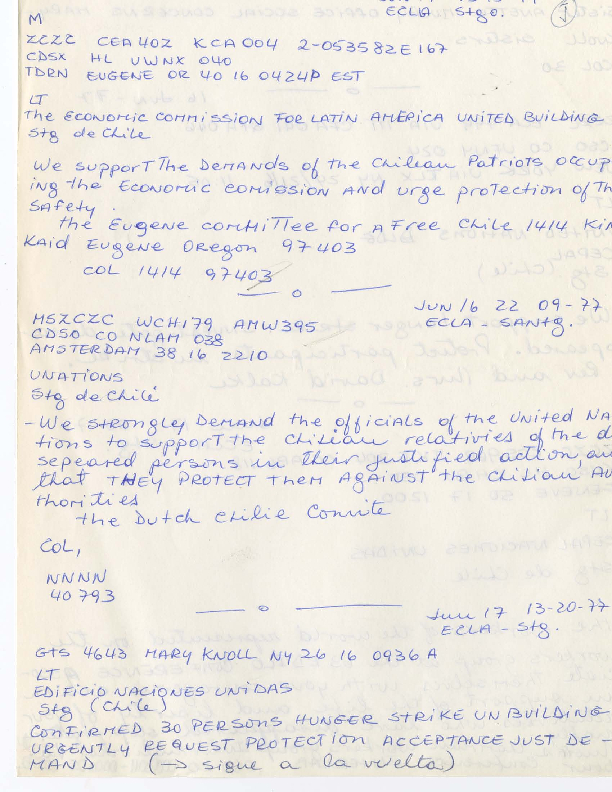 ECLA Stgo.
M
ZCZC CEA402 KCA004 2-053582E167
CDSX HL UWNX 040
TDRN EUGENE OR 40 16 0424P EST
LT
The ECONOMIC COMMISSION FOR LATIN AMERICA UNITED BUILDING
Stg de Chile
We support The Demands of the Chilean Patriots occup
ing the Economic Comission AND urge protection of Th
SAFETY.
the Eugene committee for a Free Chile 1414 Kin
KAID Eugene Oregon 97403
COL 1414 97403
— o —
JUN 16 22 09-77
MSZCZC WCH179 AMW395
ECLA - SANTg.
CDSO CO NLAM 038
AMSTERDAM 38 16 2210
UNATIONS
Stg de Chile
- We STRONGLY DEMAND the officials of the UNITED NA
tions to support the Chilian relativies of the di
sepeared persons in their justified action an
that THEY PROTECT them AGAINST the Chilian AU
thorities
the Dutch Chilie Comite
COL,
NNNN
40793
— o —
Jun 17 13-20-77
ECLA - Stg.
GTS 4643 MARY KNOLL NY 26 16 0936A
LT
EDIFICIO NACIONES UNIDAS
Stg (Chile)
CONFIRMED 30 PERSONS HUNGER STRIKE UN BUILDING
URGENTLY REQUEST PROTECTION ACCEPTANCE JUST DE-
MAND (→ sigue a la vuelta)